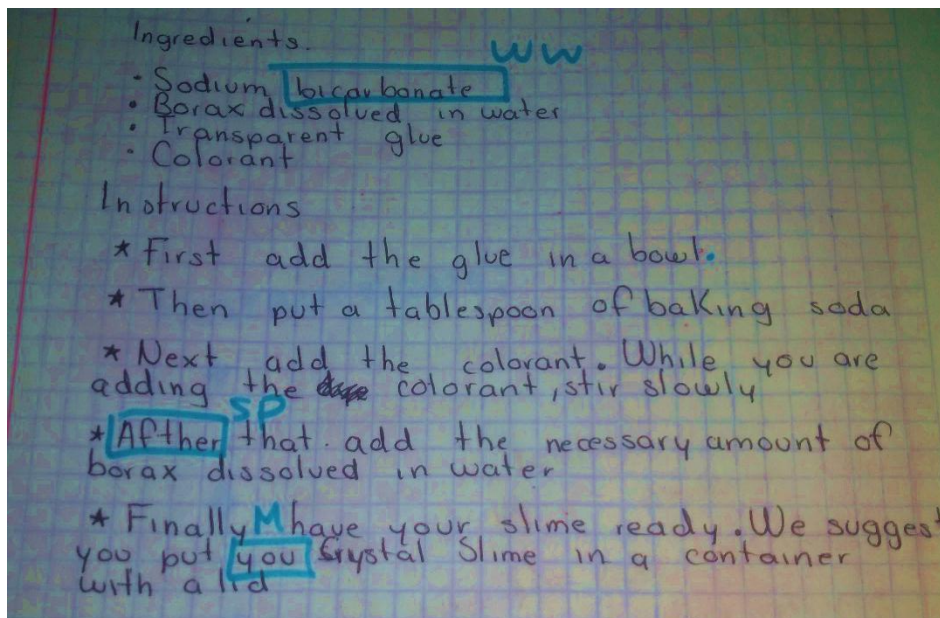 Ingredients.
WW
• Sodium bicarbonate
• Borax dissolved in water
• Transparent glue
• Colorant
Instructions
* First add the glue in a bowl.
* Then put a tablespoon of baking soda
* Next add the colorant. While you are
adding the colorant, stir slowly
SP
* Afther that. add the necessary amount of
borax dissolved in water
* Finally M have your slime ready. We suggest
you put you Crystal Slime in a container
with a lid